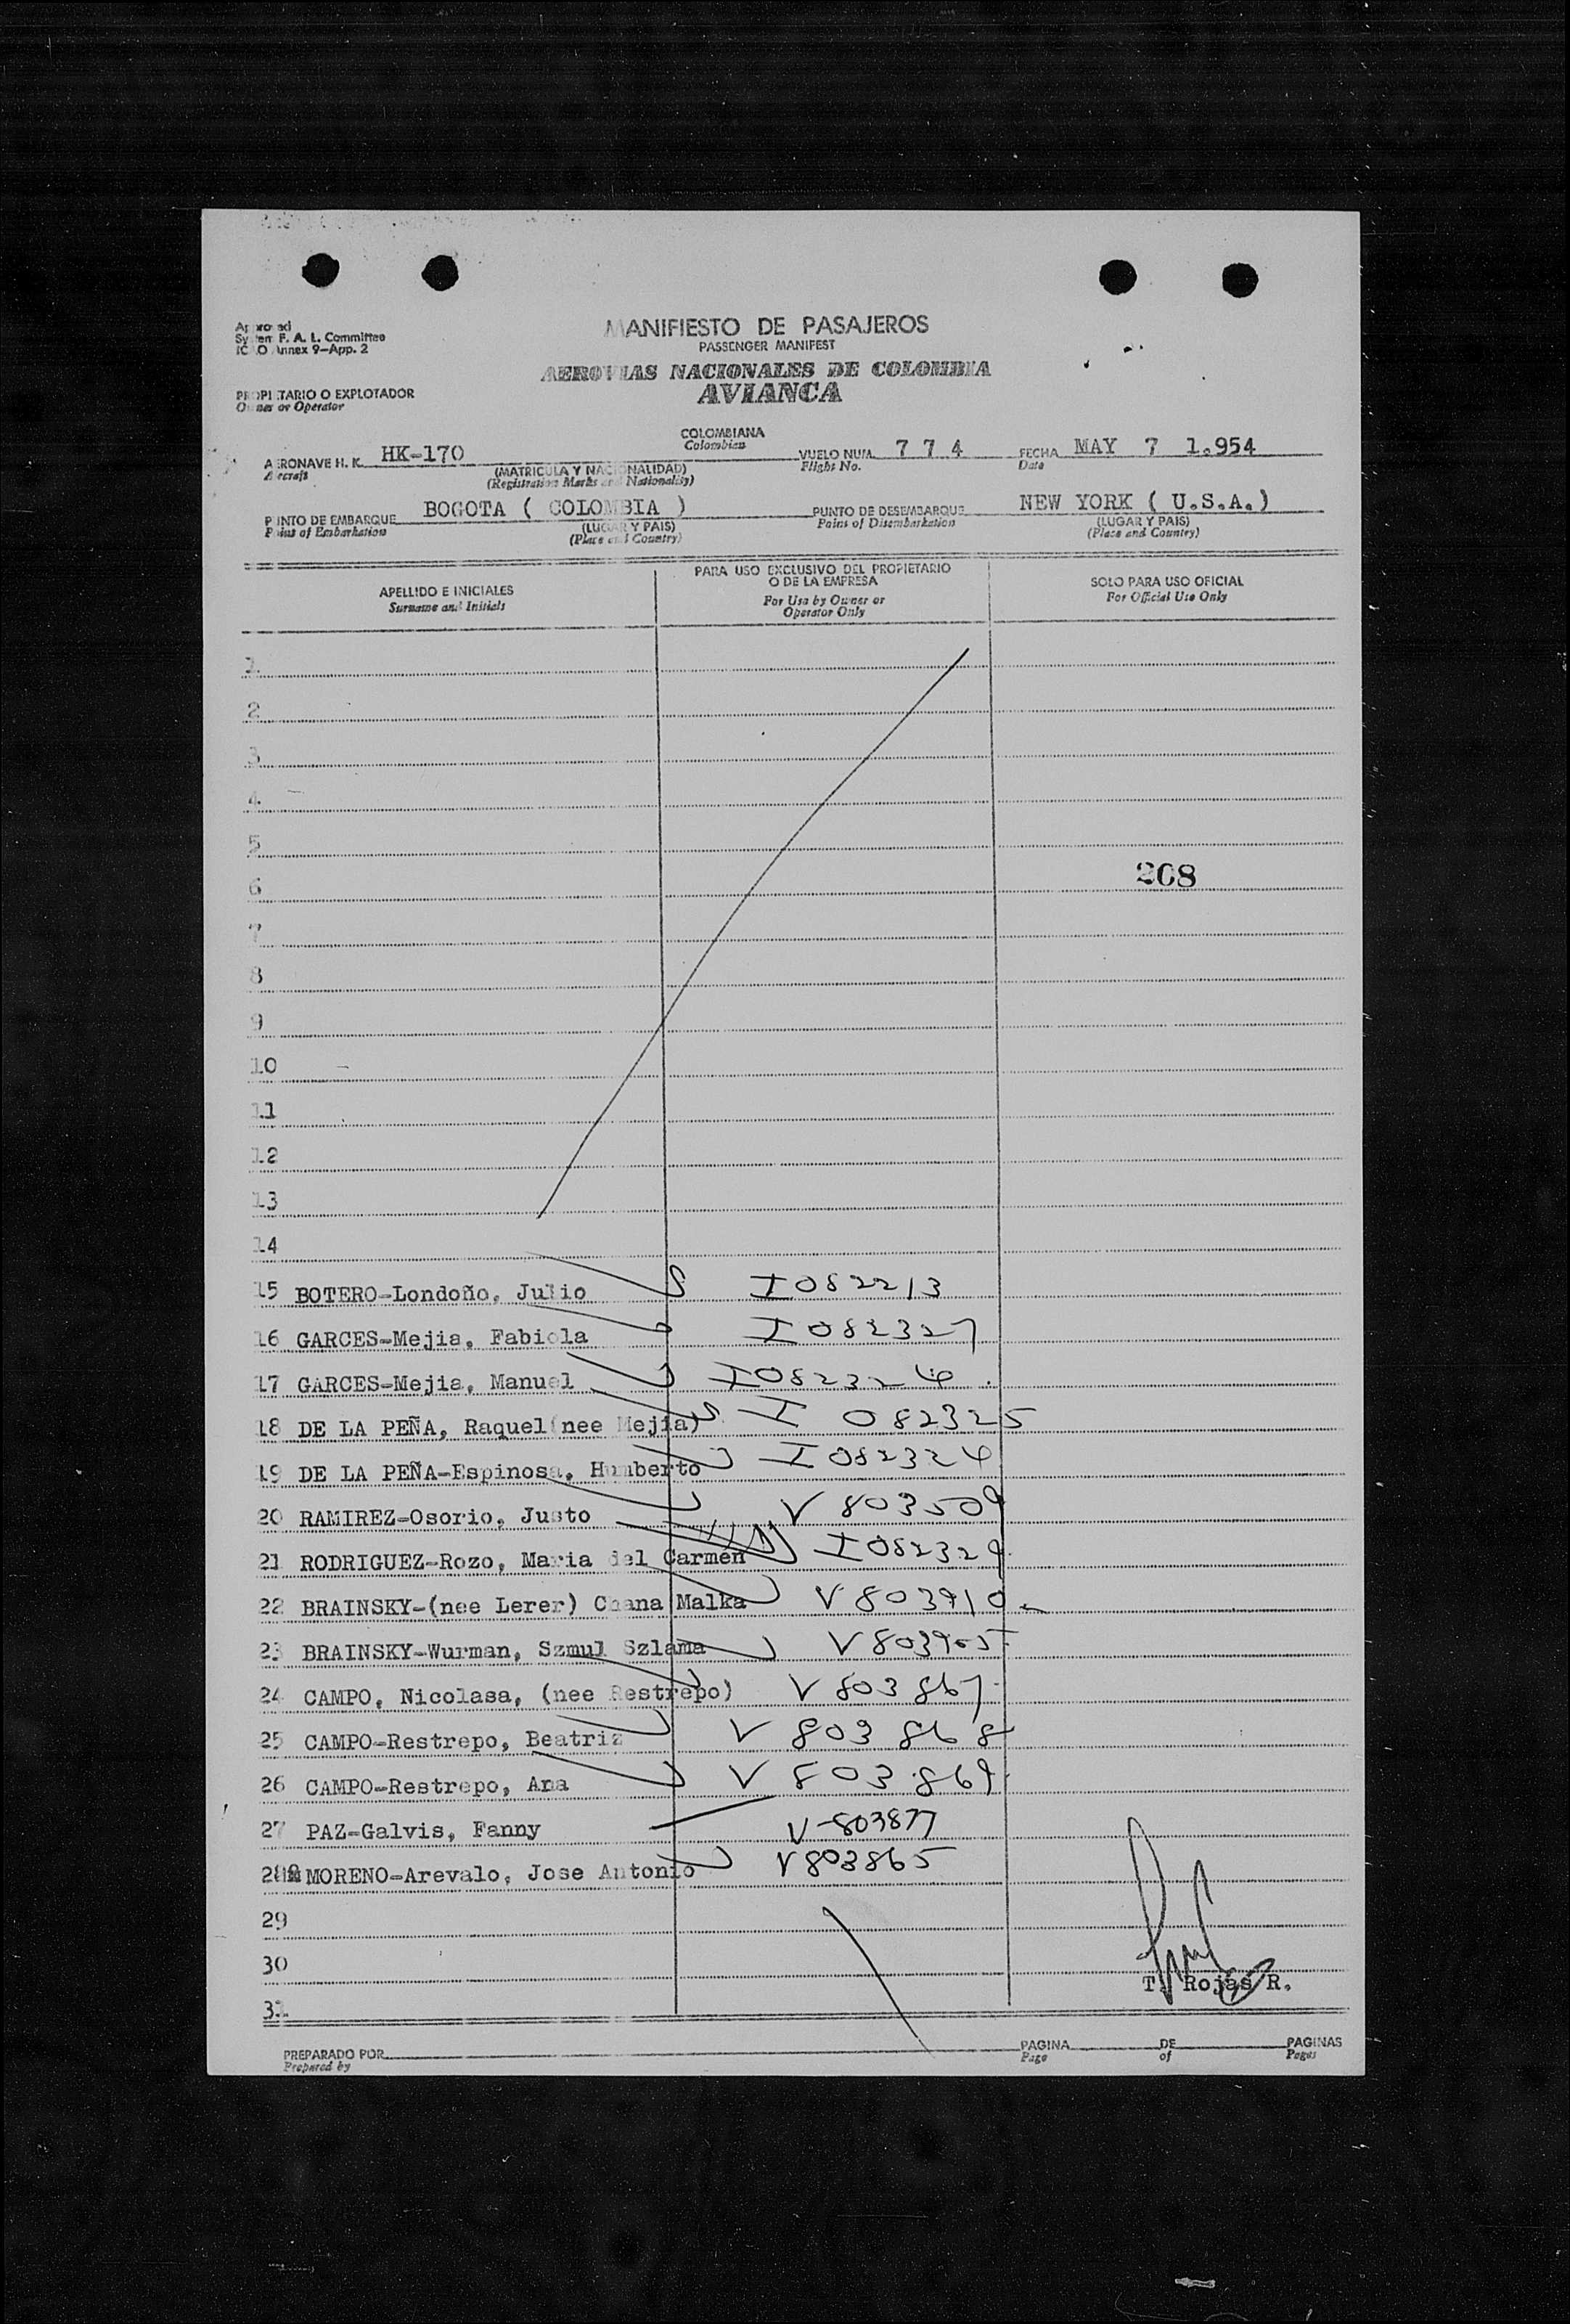 Approved
System F. A. L. Committee
ICAO Annex 9-App. 2
MANIFIESTO DE PASAJEROS
PASSENGER MANIFEST
AEROVIAS NACIONALES DE COLOMBIA
AVIANCA
PROPIETARIO O EXPLOTADOR
Owner or Operator
COLOMBIANA
Colombian
AERONAVE H. K. HK-170 VUELO NUM. 7 7 4 FECHA MAY 7 1.954
Aircraft (MATRICULA Y NACIONALIDAD) Flight No. Date
(Registration Marks and Nationality)
PUNTO DE EMBARQUE BOGOTA ( COLOMBIA ) PUNTO DE DESEMBARQUE NEW YORK ( U.S.A. )
Point of Embarkation (LUGAR Y PAIS) Point of Disembarkation (LUGAR Y PAIS)
(Place and Country) (Place and Country)
APELLIDO E INICIALES PARA USO EXCLUSIVO DEL PROPIETARIO O DE LA EMPRESA SOLO PARA USO OFICIAL
Surname and Initials For Use by Owner or Operator Only For Official Use Only
1
2
3
4
5
6 208
7
8
9
10
11
12
13
14
15 BOTERO-Londoño, Julio I 082213
16 GARCES-Mejia, Fabiola I 082327
17 GARCES-Mejia, Manuel
18 DE LA PEÑA, Raquel(nee Mejia) I 082325
19 DE LA PEÑA-Espinosa, Humberto I 082324
20 RAMIREZ-Osorio, Justo V 803509
21 RODRIGUEZ-Rozo, Maria del Carmen I 082329
22 BRAINSKY-(nee Lerer) Chana Malka V 803910
23 BRAINSKY-Wurman, Szmul Szlama V 803905
24 CAMPO, Nicolasa, (nee Restrepo) V 803867
25 CAMPO-Restrepo, Beatriz V 803868
26 CAMPO-Restrepo, Ana V 803869
27 PAZ-Galvis, Fanny V-803877
28 MORENO-Arevalo, Jose Antonio V 803865
29
30
T. Rojas R.
31
PREPARADO POR PAGINA DE PAGINAS
Prepared by Page of Pages